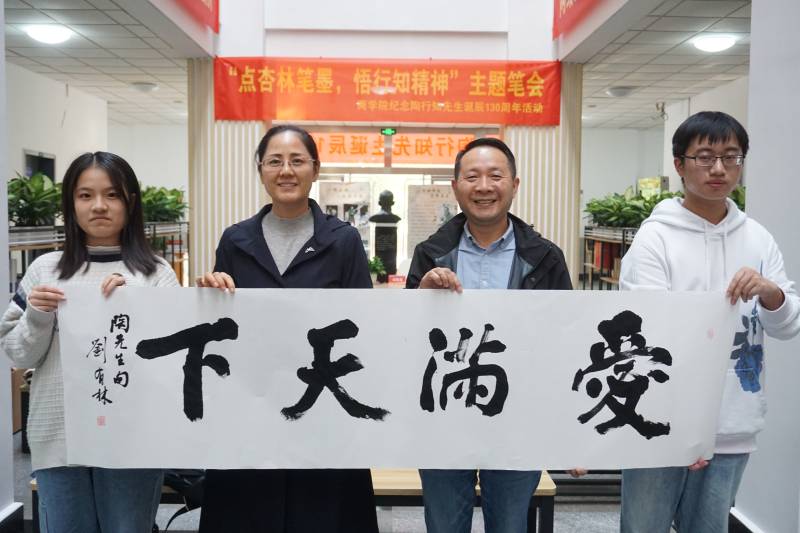 “点杏林笔墨，悟行知精神”主题笔会
商学院纪念陶行知先生诞辰130周年活动
行知先生诞辰1
愛满天下
陶先生句
劉有林